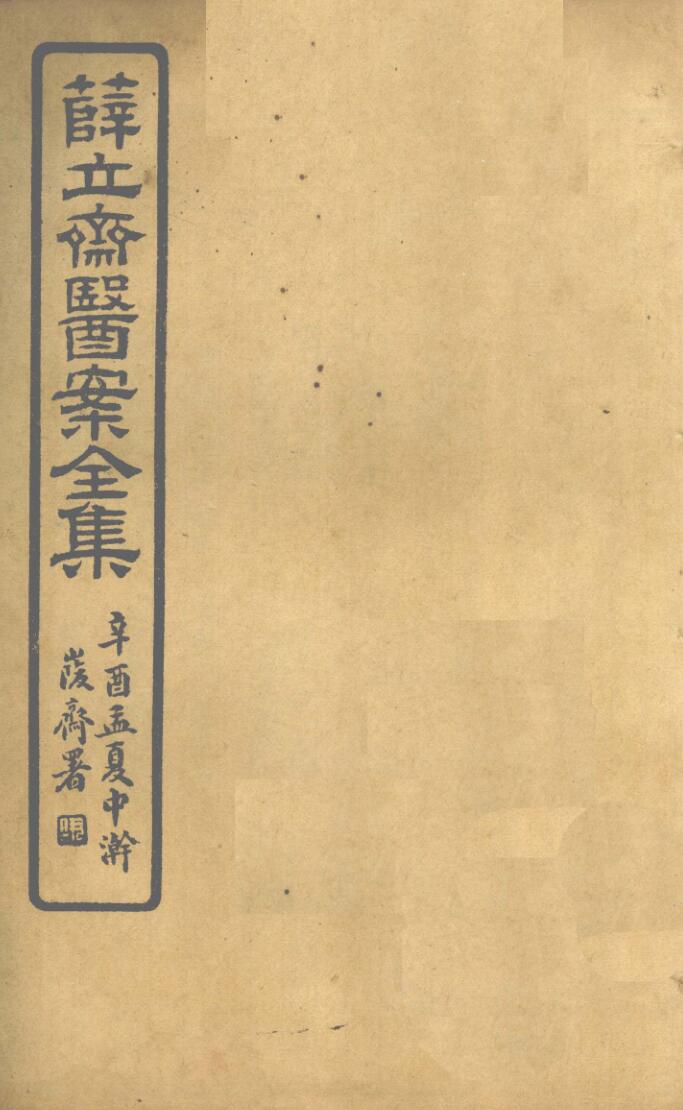 薛立齋醫案全集
辛酉孟夏中澣
齋署